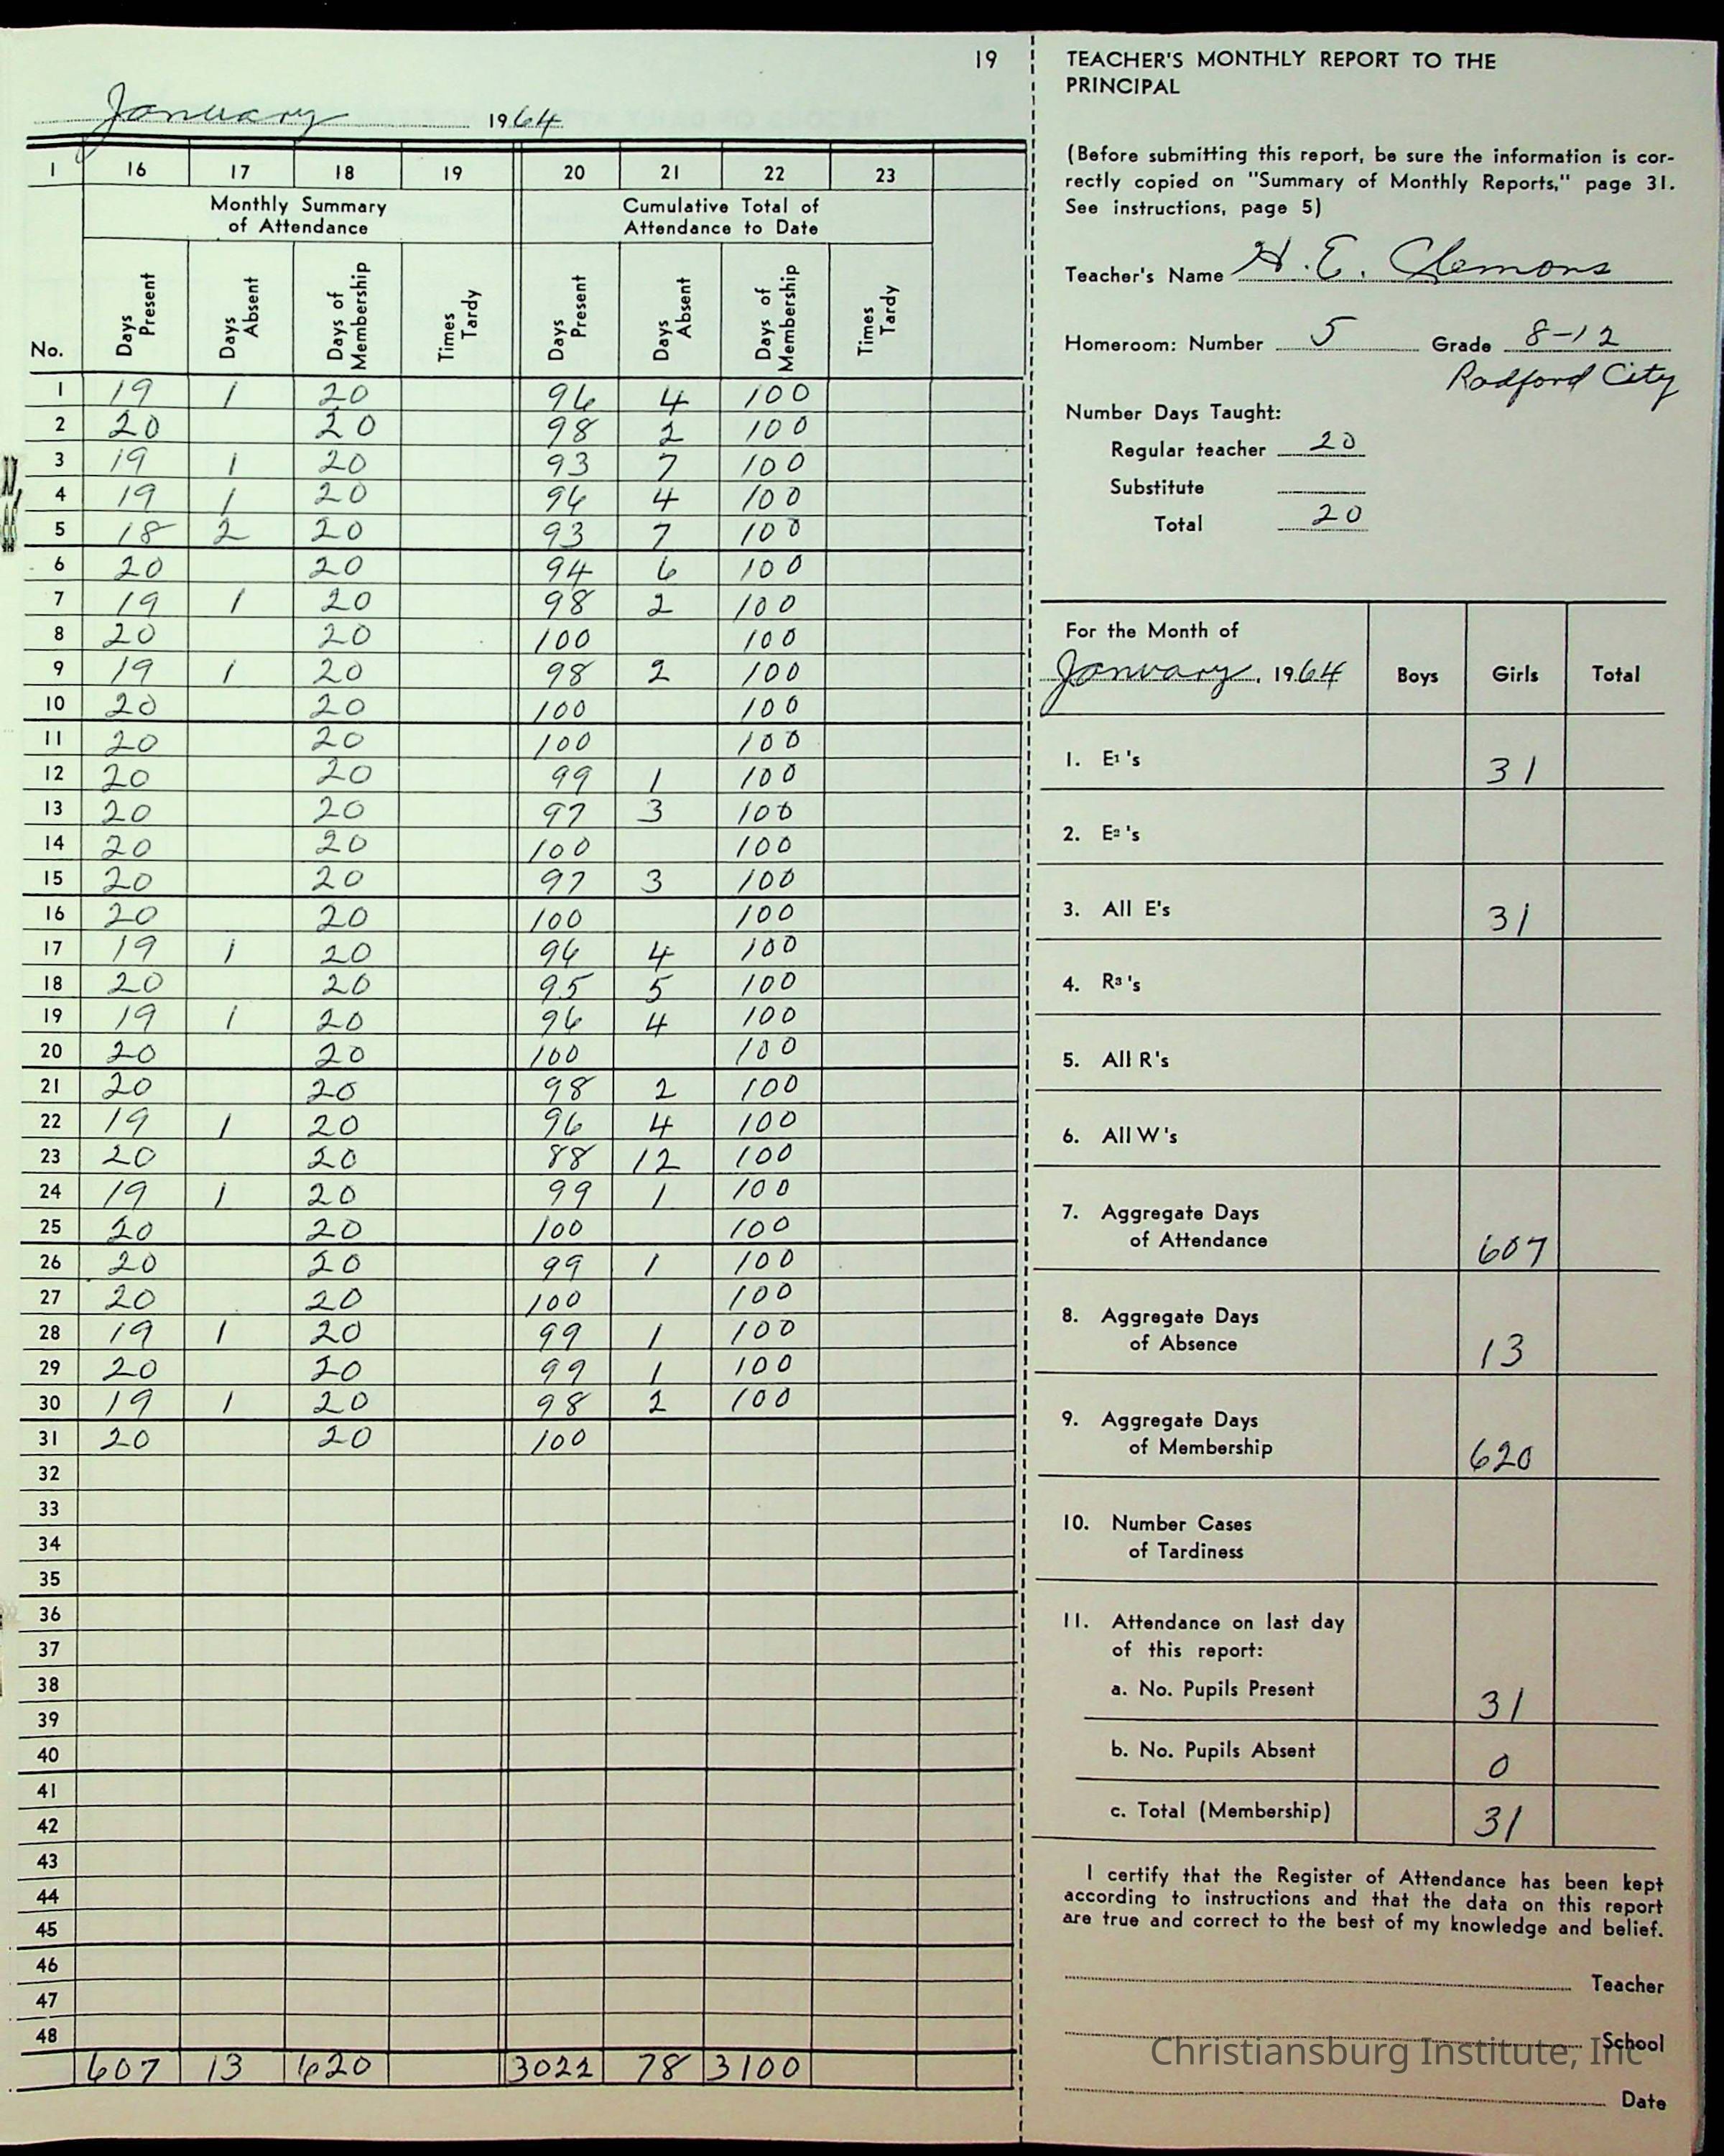 19
January 1964
1 16 17 18 19 20 21 22 23
Monthly Summary of Attendance Cumulative Total of Attendance to Date
No. Days Present Days Absent Days of Membership Times Tardy Days Present Days Absent Days of Membership Times Tardy
1 19 1 20 96 4 100
2 20 20 98 2 100
3 19 1 20 93 7 100
4 19 1 20 96 4 100
5 18 2 20 93 7 100
6 20 20 94 6 100
7 19 1 20 98 2 100
8 20 20 100 100
9 19 1 20 98 2 100
10 20 20 100 100
11 20 20 100 100
12 20 20 99 1 100
13 20 20 97 3 100
14 20 20 100 100
15 20 20 97 3 100
16 20 20 100 100
17 19 1 20 96 4 100
18 20 20 95 5 100
19 19 1 20 96 4 100
20 20 20 100 100
21 20 20 98 2 100
22 19 1 20 96 4 100
23 20 20 88 12 100
24 19 1 20 99 1 100
25 20 20 100 100
26 20 20 99 1 100
27 20 20 100 100
28 19 1 20 99 1 100
29 20 20 99 1 100
30 19 1 20 98 2 100
31 20 20 100
32
33
34
35
36
37
38
39
40
41
42
43
44
45
46
47
48
607 13 620 3022 78 3100
TEACHER'S MONTHLY REPORT TO THE
PRINCIPAL
(Before submitting this report, be sure the information is cor-
rectly copied on "Summary of Monthly Reports," page 31.
See instructions, page 5)
Teacher's Name H. E. Clemons
Homeroom: Number 5 Grade 8-12
Radford City
Number Days Taught:
Regular teacher 20
Substitute
Total 20
For the Month of
January, 1964 Boys Girls Total
1. E1's 31
2. E2's
3. All E's 31
4. R3's
5. All R's
6. All W's
7. Aggregate Days
of Attendance 607
8. Aggregate Days
of Absence 13
9. Aggregate Days
of Membership 620
10. Number Cases
of Tardiness
11. Attendance on last day
of this report:
a. No. Pupils Present 31
b. No. Pupils Absent 0
c. Total (Membership) 31
I certify that the Register of Attendance has been kept
according to instructions and that the data on this report
are true and correct to the best of my knowledge and belief.
Teacher
School
Christiansburg Institute, Inc
Date